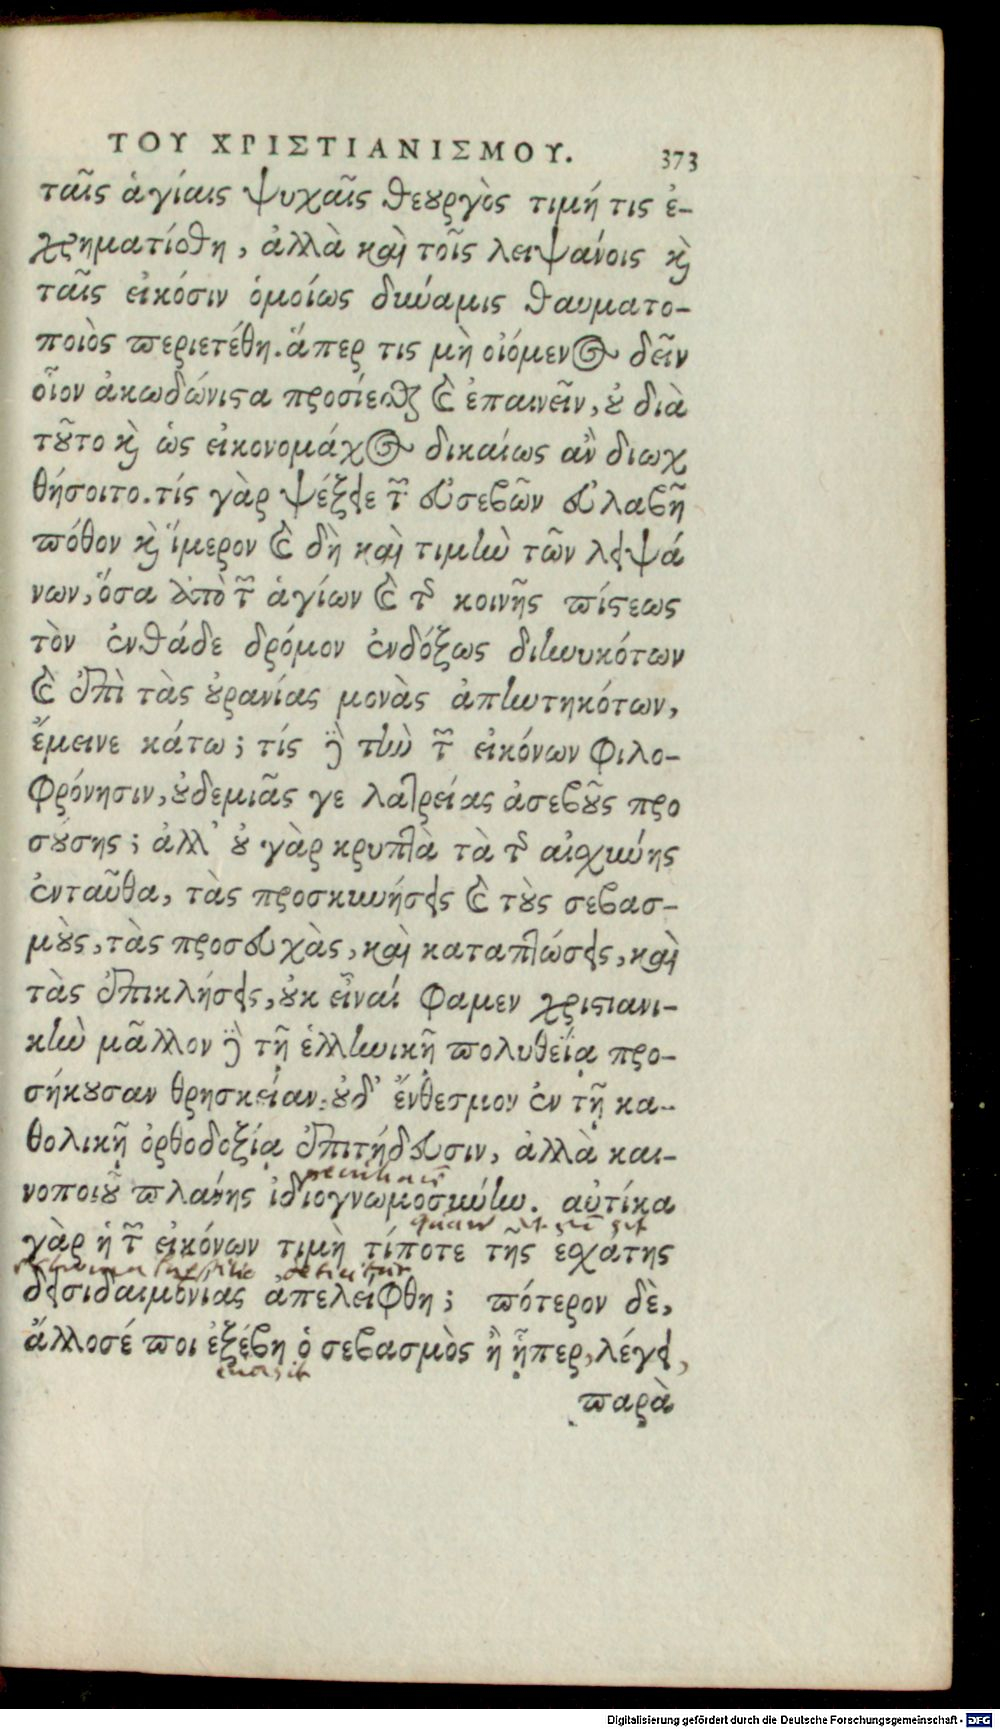 ΤΟΥ ΧΡΙΣΤΙΑΝΙΣΜΟΥ. 373
ταῖς ἁγίαις ψυχαῖς θεουργὸς τιμή τις ἐ-
χρηματίσθη, ἀλλὰ καὶ τοῖς λειψάνοις καὶ
ταῖς εἰκόσιν ὁμοίως δύναμις θαυματο-
ποιὸς περιετέθη. ἅπερ τις μὴ οἰόμενος δεῖν
οἷον ἀκωδώνιστα προσίεσθαι καὶ ἐπαινεῖν, οὐ διὰ
τοῦτο καὶ ὡς εἰκονομάχος δικαίως ἂν διωχ
θήσοιτο. τίς γὰρ ψέξειε τῶν εὐσεβῶν εὐλαβῆ
πόθον καὶ ἵμερον καὶ δὴ καὶ τιμὴν τῶν λειψά
νων, ὅσα ἀπὸ τῶν ἁγίων καὶ τῆς κοινῆς πίστεως
τὸν ἐνθάδε δρόμον ἐνδόξως διηνυκότων
καὶ ἐπὶ τὰς οὐρανίας μονὰς ἀπηντηκότων,
ἔμεινε κάτω; τίς δὲ τὴν τῶν εἰκόνων φιλο-
φρόνησιν, οὐδεμιᾶς γε λατρείας ἀσεβοῦς προ
σούσης; ἀλλ' οὐ γὰρ κρυπτὰ τὰ τῆς αἰσχύνης
ἐνταῦθα, τὰς προσκυνήσεις καὶ τοὺς σεβασ-
μοὺς, τὰς προσευχὰς, καὶ καταπτώσεις, καὶ
τὰς ἐπικλήσεις, οὐκ εἶναί φαμεν χριστιανι-
κὴν μᾶλλον ἢ τῇ ἑλληνικῇ πολυθεΐᾳ προ-
σήκουσαν θρησκείαν. οὐδ' ἔνθεσμον ἐν τῇ κα-
θολικῇ ὀρθοδοξίᾳ ἐπιτήδευσιν, ἀλλὰ και-
νοποιοῦ πλάνης ἰδιογνωμοσύνην. αὐτίκα
γὰρ ἡ τῶν εἰκόνων τιμὴ τίποτε τῆς ἐσχάτης
δεισιδαιμονίας ἀπελείφθη; πότερον δὲ,
ἄλλοσέ ποι ἐξέβη ὁ σεβασμὸς ἢ ᾗπερ, λέγει,
παρὰ
Digitalisierung gefördert durch die Deutsche Forschungsgemeinschaft - DFG